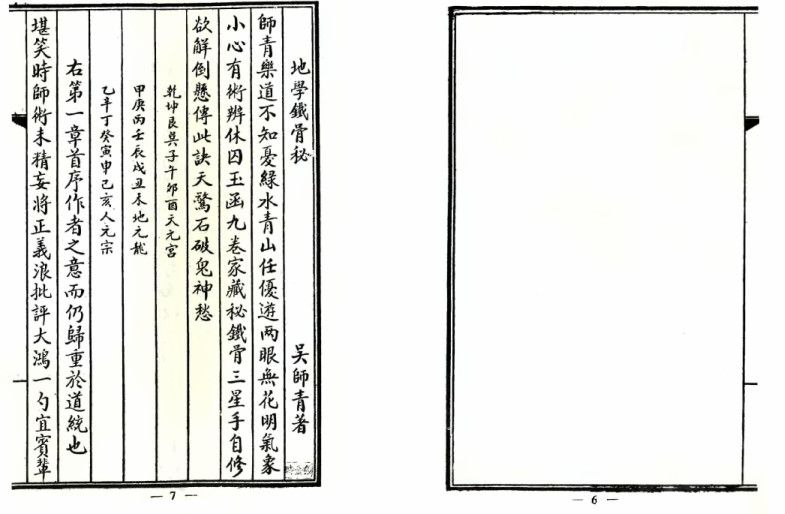 地學鐵骨秘
吳師青著
師青樂道不知憂綠水青山任優遊两眼無花明氣象
小心有術辨休囚玉函九卷家藏秘鐵骨三星手自修
欲解倒懸傳此訣天驚石破鬼神愁
乾坤艮巽子午卯酉天元宮
甲庚丙壬辰戌丑未地元龍
乙辛丁癸寅申己亥人元宗
右第一章首序作者之意而仍歸重於道統也
堪笑時師術未精妄將正義浪批評大鴻一勺宜賓輩
— 7 —
— 6 —